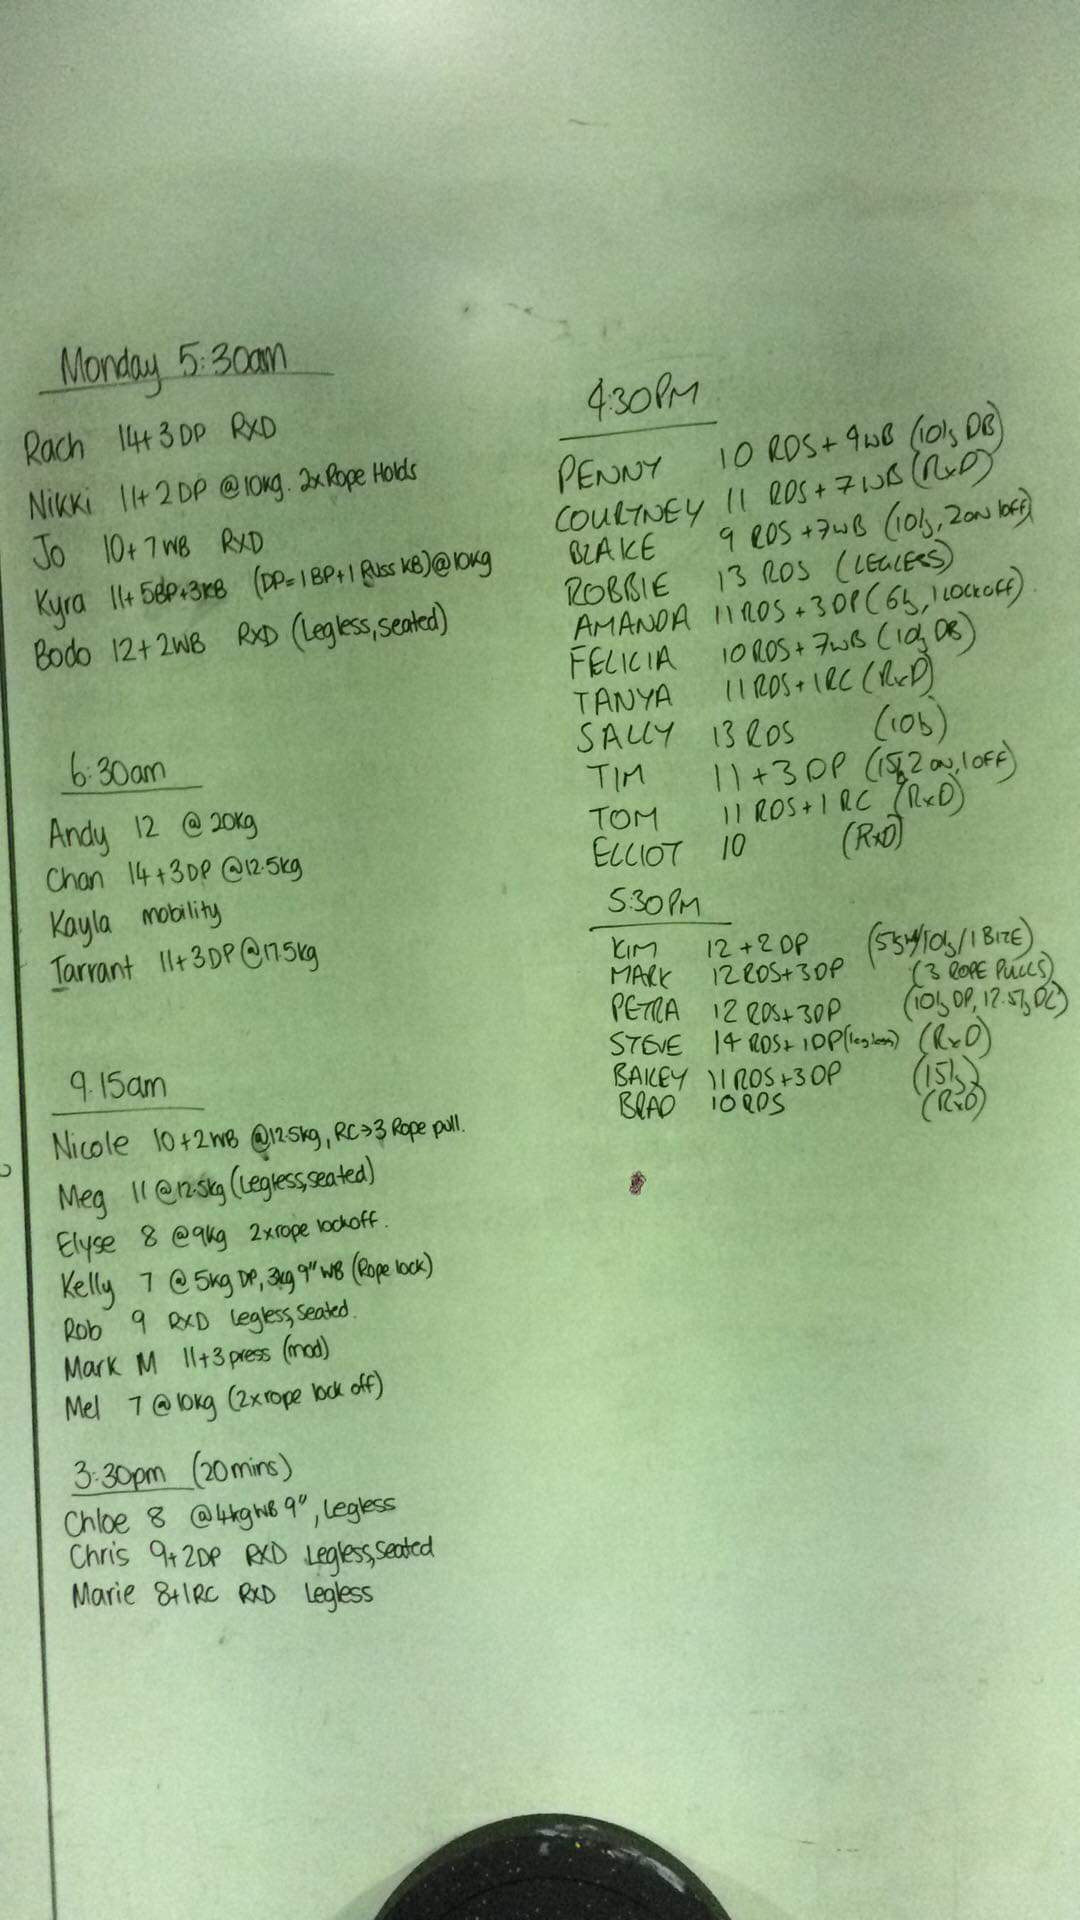 Monday 5:30am
Rach 14+3DP RXD
Nikki 11+2DP @10kg. 2xRope Holds
Jo 10+7WB RXD
Kyra 11+5BP+3KB (DP=1BP+1 Russ KB)@10kg
Bodo 12+2WB RXD (Legless, seated)
6:30am
Andy 12 @20kg
Chan 14+3DP @12.5kg
Kayla mobility
Tarrant 11+3DP @17.5kg
9.15am
Nicole 10+2WB @12.5kg, RC→3 Rope pull.
Meg 11 @12.5kg (Legless, seated)
Elyse 8 @9kg 2xrope lockoff.
Kelly 7 @5kg DP, 3kg 9" WB (Rope lock)
Rob 9 RXD Legless, seated.
Mark M 11+3press (mod)
Mel 7 @10kg (2xrope lock off)
3:30pm (20mins)
Chloe 8 @4kgWB 9", Legless
Chris 9+2DP RXD Legless, seated
Marie 8+1RC RXD Legless
4:30PM
PENNY 10 RDS + 9WB (10kg DB)
COURTNEY 11 RDS + 7WB (RxD)
BLAKE 9 RDS +7WB (10kg, 2 on 1 off)
ROBBIE 13 RDS (LEGLESS)
AMANDA 11 RDS + 3DP (6kg, 1 LOCKOFF)
FELICIA 10 RDS + 7WB (10kg DB)
TANYA 11 RDS + 1RC (RxD)
SALLY 13 RDS (10kg)
TIM 11 + 3 DP (15kg 2 on, 1 OFF)
TOM 11 RDS + 1 RC (RxD)
ELLIOT 10 (RxD)
5:30PM
KIM 12 + 2DP (10kg/1 BITE)
MARK 12 RDS + 3DP (3 ROPE PULLS)
PETRA 12 RDS + 3DP (10kg DP, 12.5kg DL)
STEVE 14 RDS + 1DP (legless) (RxD)
BAILEY 11 RDS + 3DP (15kg)
BRAD 10 RDS (RxD)